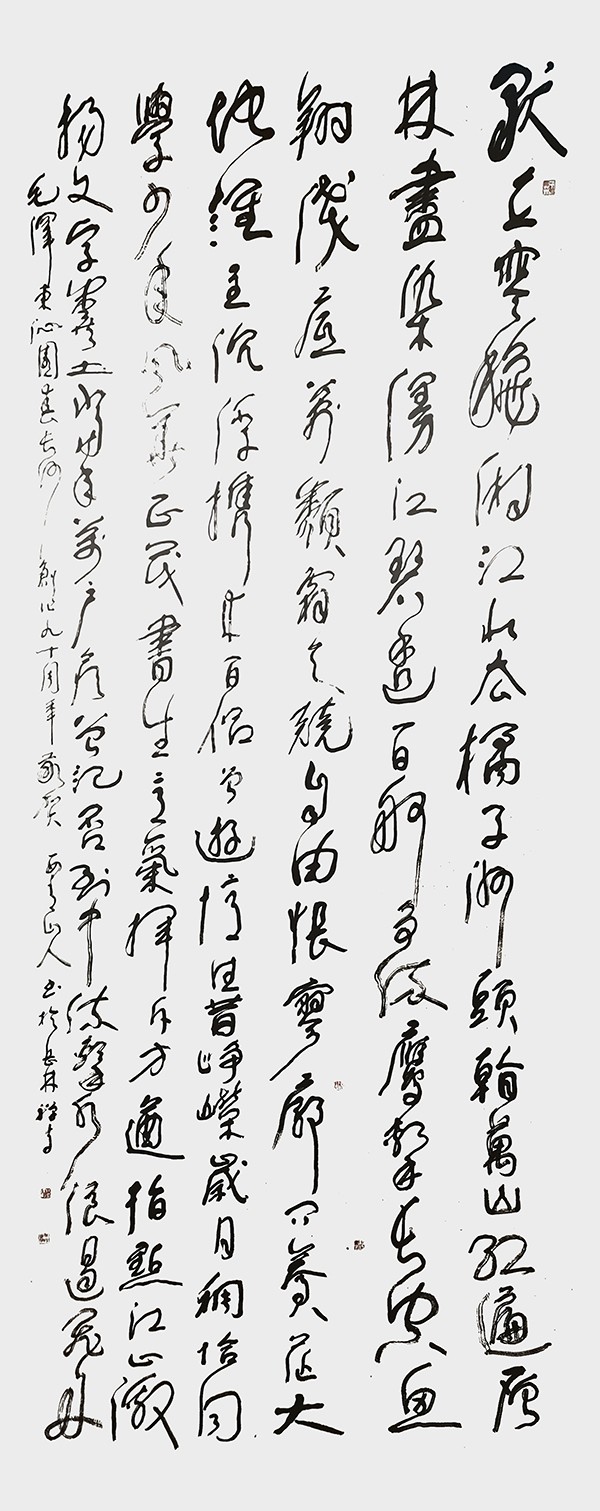 獨立寒秋湘江北去橘子洲頭看萬山紅遍層
林盡染漫江碧透百舸爭流鷹擊長空魚
翔淺底萬類霜天競自由悵寥廓問蒼茫大
地誰主沉浮攜來百侶曾遊憶往昔崢嶸歲月稠恰同
學少年風華正茂書生意氣揮斥方遒指點江山激
揚文字糞土當年萬戶侯曾記否到中流擊水浪遏飛舟
毛澤東沁園春長沙創作九十周年敬賀 山人书於岳林禅寺